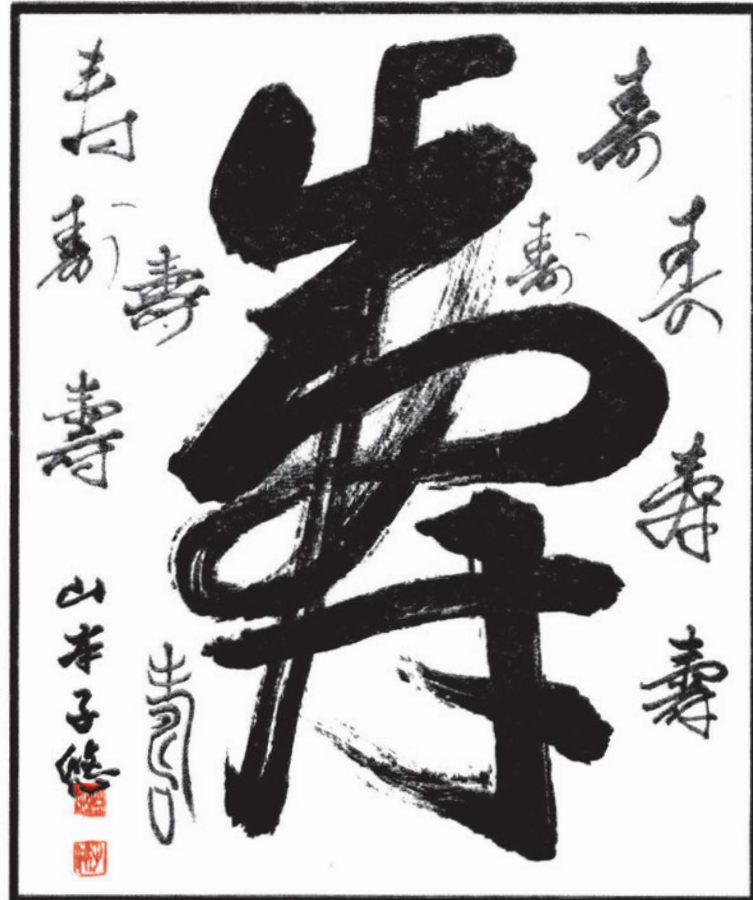 壽
寿
壽
壽
壽
壽
寿
壽
壽
壽
壽
山本子悠